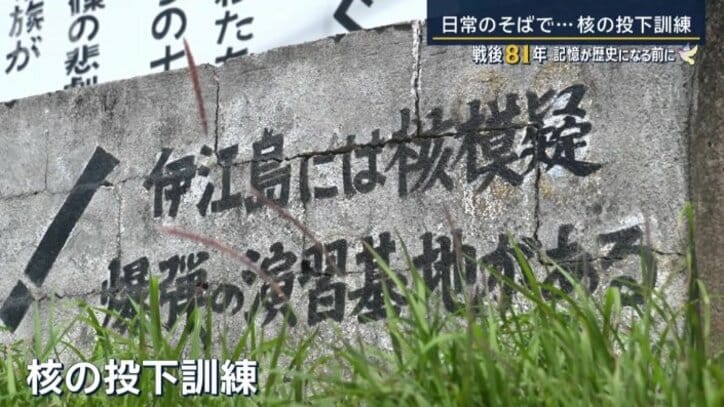 日常のそばで…核の投下訓練
戦後81年 記憶が歴史になる前に
族が
の悲劇
わたち
の土
ぐ
伊江島には核模疑
爆弾の演習基地がある
!
核の投下訓練